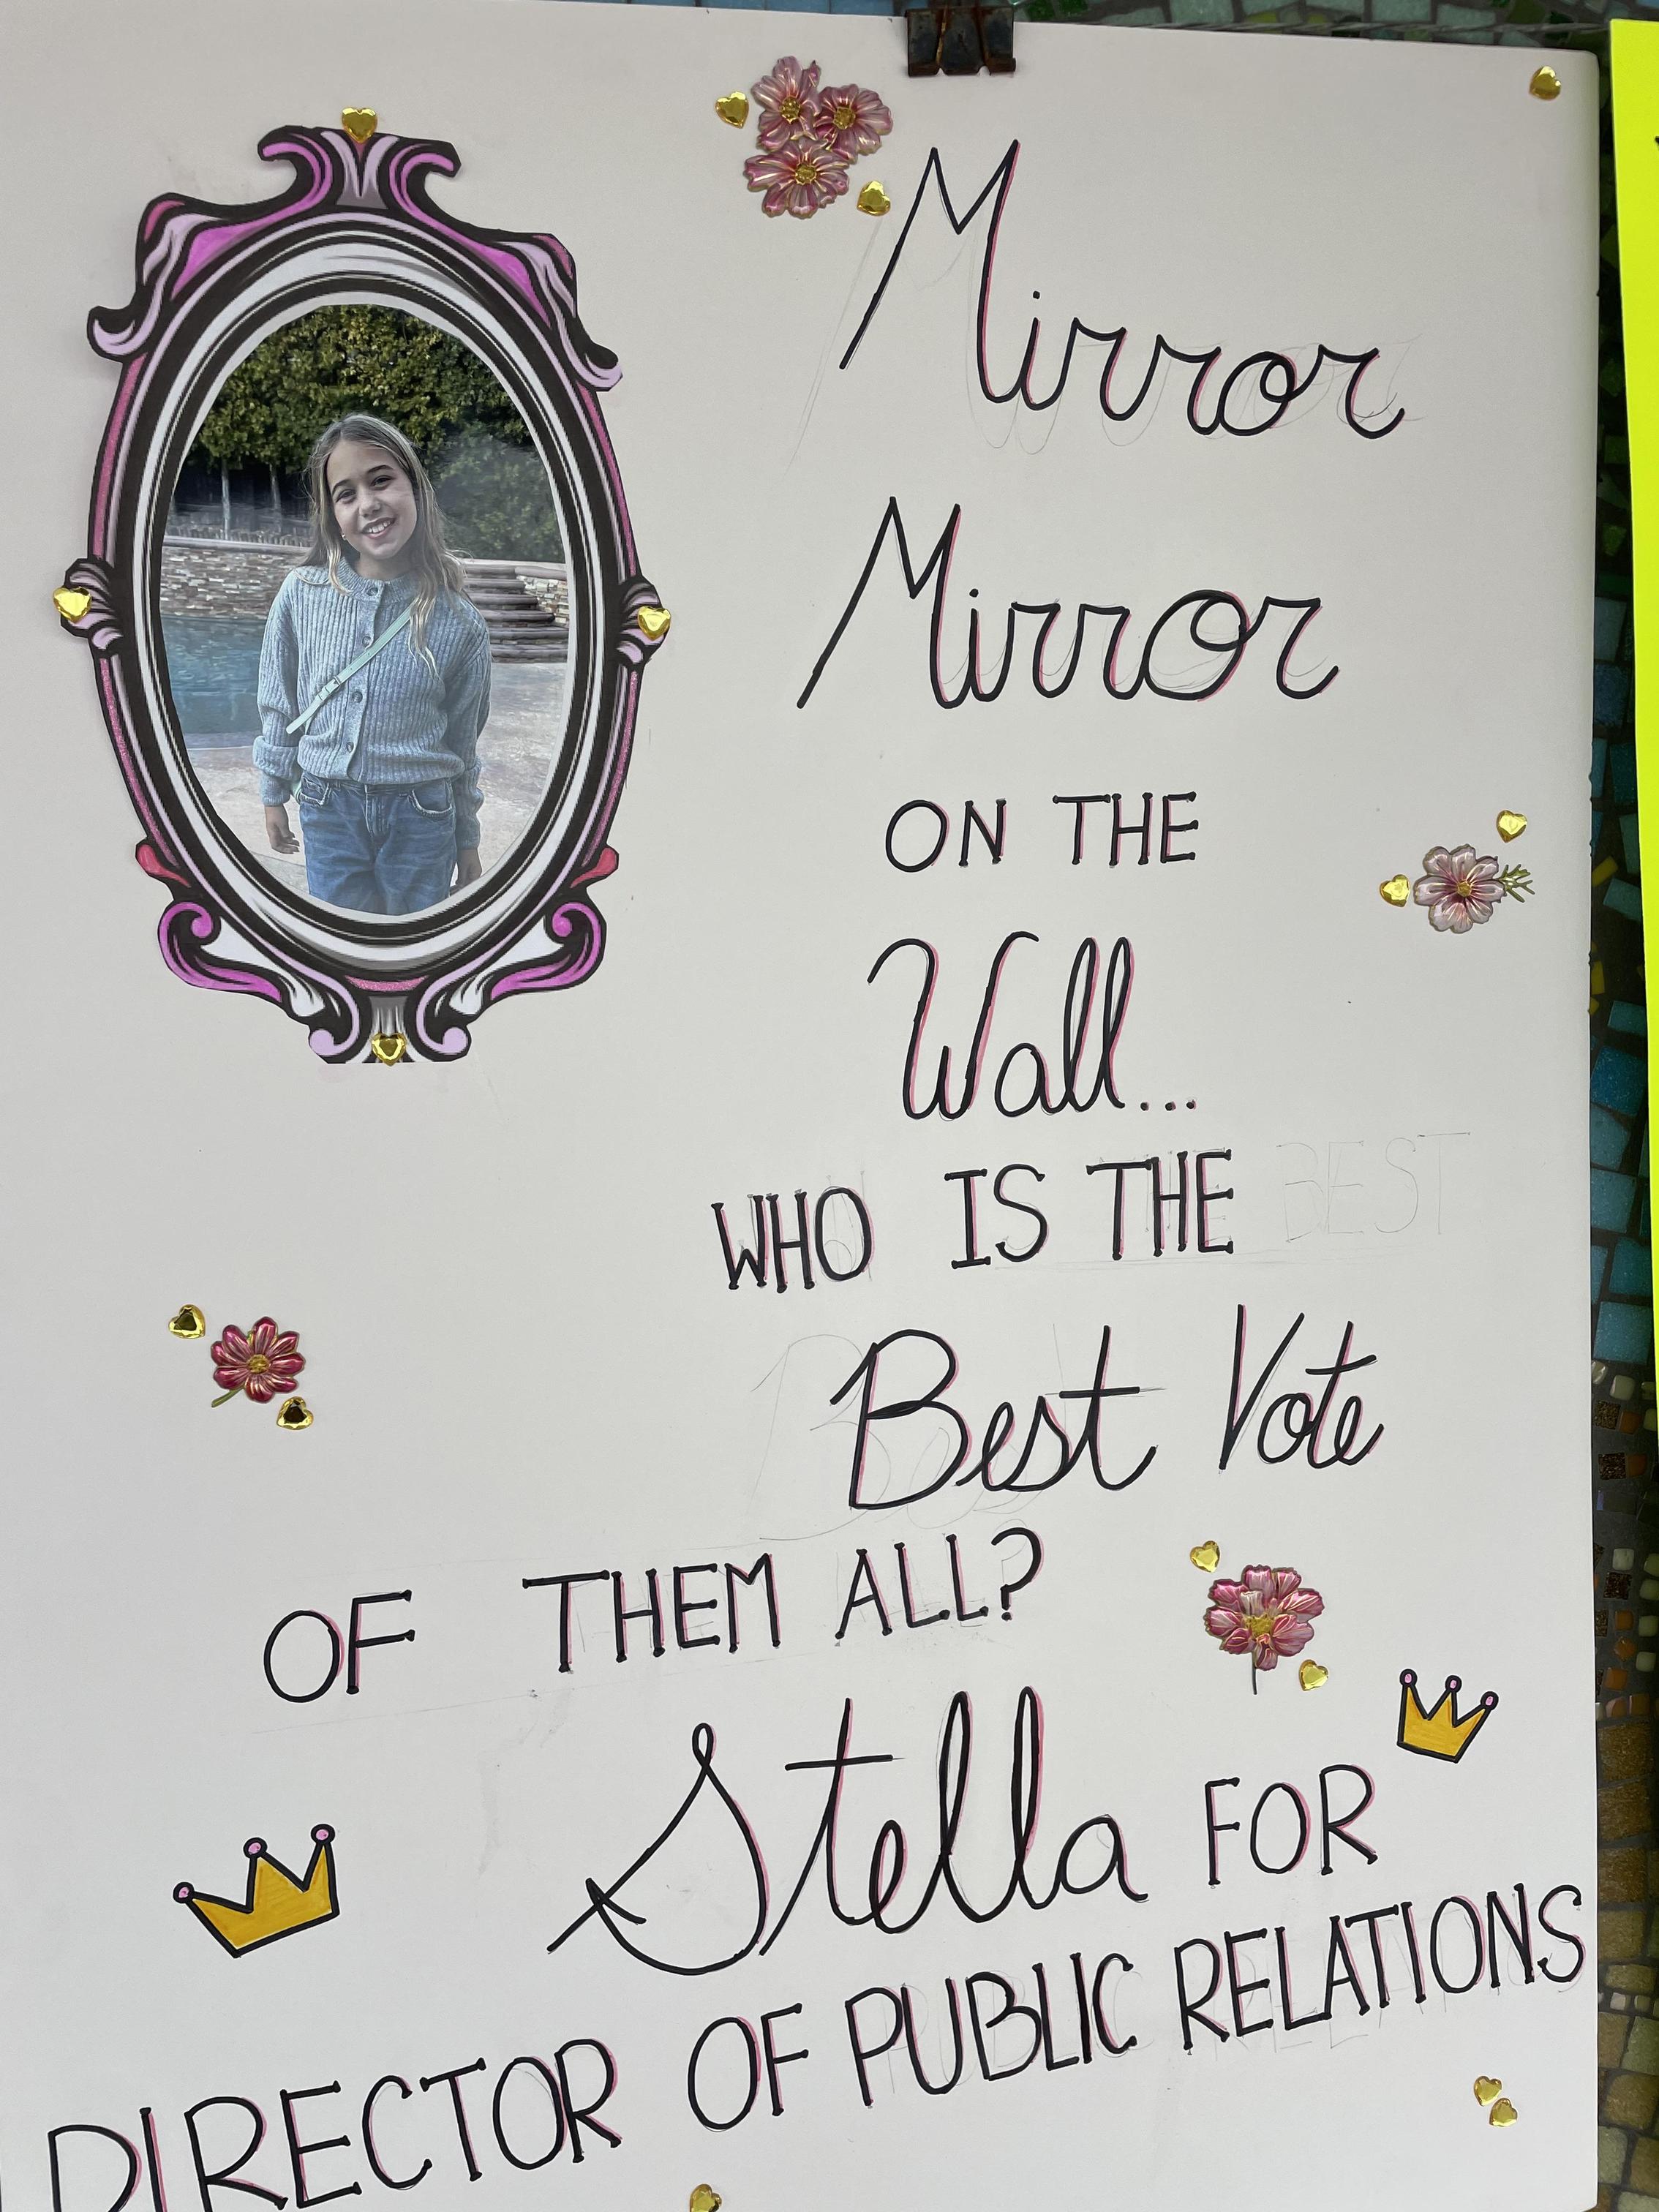 Mirror
Mirror
ON THE
Wall...
WHO IS THE BEST
Best Vote
OF THEM ALL?
Stella FOR
DIRECTOR OF PUBLIC RELATIONS